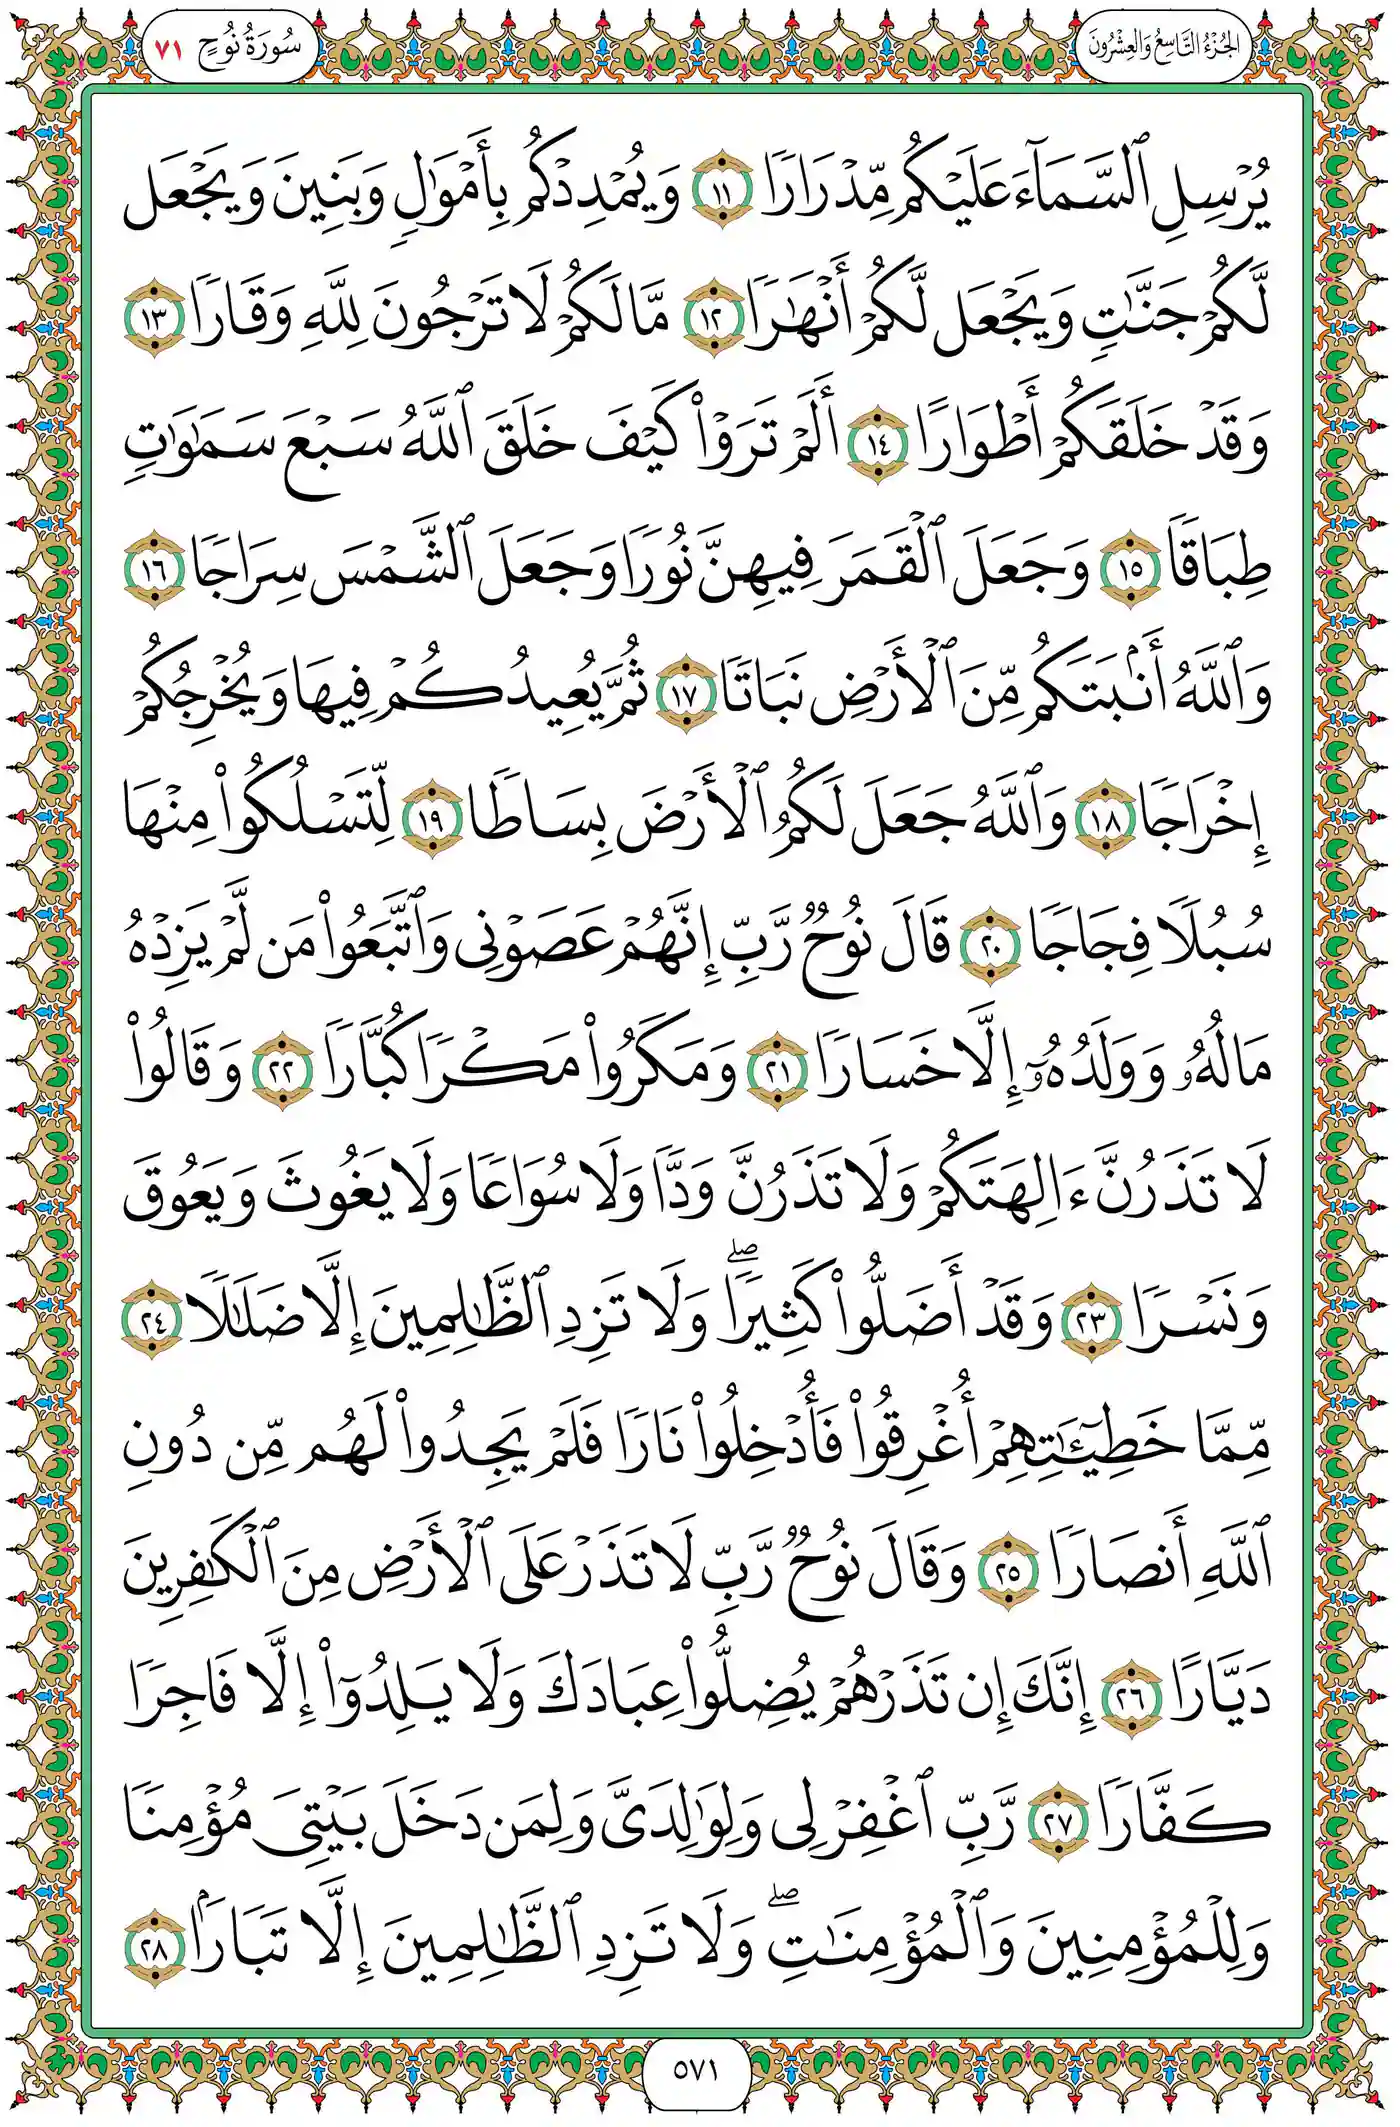 الجُزْءُ التَّاسِعُ وَالعِشْرُونَ
سُورَةُ نُوحٍ ٧١
يُرْسِلِ ٱلسَّمَآءَ عَلَيْكُم مِّدْرَارًا ١١ وَيُمْدِدْكُم بِأَمْوَٰلٍ وَبَنِينَ وَيَجْعَل
لَّكُمْ جَنَّٰتٍ وَيَجْعَل لَّكُمْ أَنْهَٰرًا ١٢ مَّا لَكُمْ لَا تَرْجُونَ لِلَّهِ وَقَارًا ١٣
وَقَدْ خَلَقَكُمْ أَطْوَارًا ١٤ أَلَمْ تَرَوْا۟ كَيْفَ خَلَقَ ٱللَّهُ سَبْعَ سَمَٰوَٰتٍ
طِبَاقًا ١٥ وَجَعَلَ ٱلْقَمَرَ فِيهِنَّ نُورًا وَجَعَلَ ٱلشَّمْسَ سِرَاجًا ١٦
وَٱللَّهُ أَنۢبَتَكُم مِّنَ ٱلْأَرْضِ نَبَاتًا ١٧ ثُمَّ يُعِيدُكُمْ فِيهَا وَيُخْرِجُكُمْ
إِخْرَاجًا ١٨ وَٱللَّهُ جَعَلَ لَكُمُ ٱلْأَرْضَ بِسَاطًا ١٩ لِّتَسْلُكُوا۟ مِنْهَا
سُبُلًا فِجَاجًا ٢٠ قَالَ نُوحٌ رَّبِّ إِنَّهُمْ عَصَوْنِى وَٱتَّبَعُوا۟ مَن لَّمْ يَزِدْهُ
مَالُهُۥ وَوَلَدُهُۥٓ إِلَّا خَسَارًا ٢١ وَمَكَرُوا۟ مَكْرًا كُبَّارًا ٢٢ وَقَالُوا۟
لَا تَذَرُنَّ ءَالِهَتَكُمْ وَلَا تَذَرُنَّ وَدًّا وَلَا سُوَاعًا وَلَا يَغُوثَ وَيَعُوقَ
وَنَسْرًا ٢٣ وَقَدْ أَضَلُّوا۟ كَثِيرًا ۖ وَلَا تَزِدِ ٱلظَّٰلِمِينَ إِلَّا ضَلَٰلًا ٢٤
مِّمَّا خَطِيٓـَٰٔتِهِمْ أُغْرِقُوا۟ فَأُدْخِلُوا۟ نَارًا فَلَمْ يَجِدُوا۟ لَهُم مِّن دُونِ
ٱللَّهِ أَنصَارًا ٢٥ وَقَالَ نُوحٌ رَّبِّ لَا تَذَرْ عَلَى ٱلْأَرْضِ مِنَ ٱلْكَٰفِرِينَ
دَيَّارًا ٢٦ إِنَّكَ إِن تَذَرْهُمْ يُضِلُّوا۟ عِبَادَكَ وَلَا يَلِدُوٓا۟ إِلَّا فَاجِرًا
كَفَّارًا ٢٧ رَّبِّ ٱغْفِرْ لِى وَلِوَٰلِدَىَّ وَلِمَن دَخَلَ بَيْتِىَ مُؤْمِنًا
وَلِلْمُؤْمِنِينَ وَٱلْمُؤْمِنَٰتِ ۖ وَلَا تَزِدِ ٱلظَّٰلِمِينَ إِلَّا تَبَارًۢا ٢٨
٥٧١